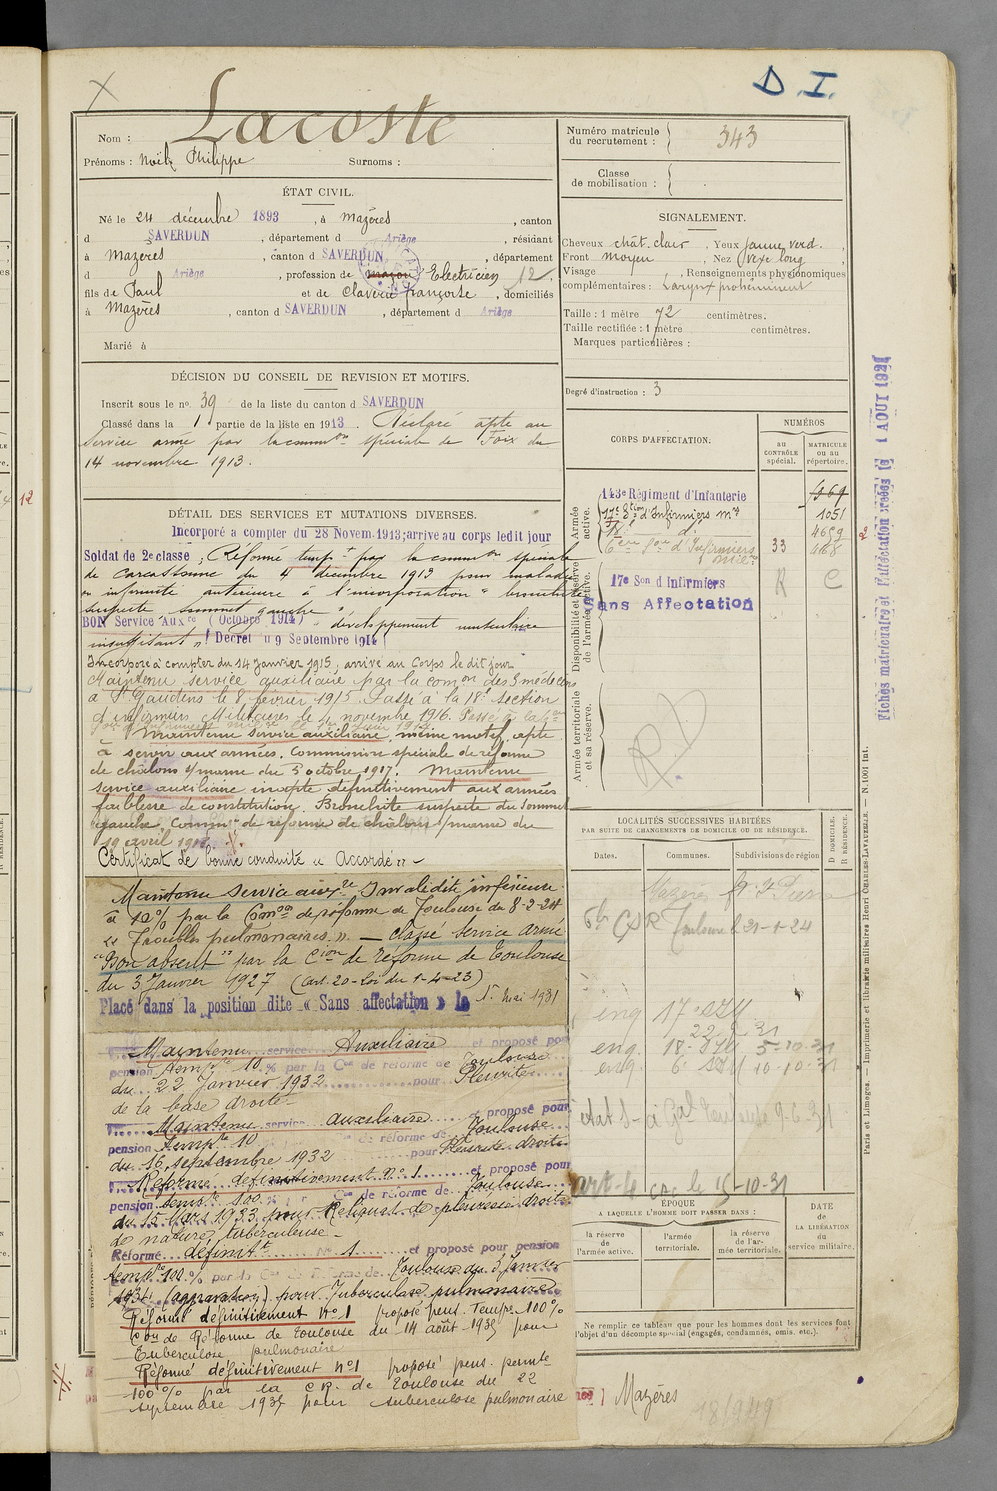 D.I.
Nom : Lacoste
Prénoms : Noël, Philippe Surnoms :
Numéro matricule
du recrutement : 343
Classe
de mobilisation :
ÉTAT CIVIL.
Né le 24 décembre 1893, à Mazères, canton
d SAVERDUN, département d Ariège, résidant
à Mazères, canton d SAVERDUN, département
d Ariège, profession de maçon Electricien 12,
fils de Paul et de Claverie françoise, domiciliés
à Mazères, canton d SAVERDUN, département d Ariège
Marié à
SIGNALEMENT.
Cheveux chât. clair, Yeux jaune verd.
Front moyen, Nez vexe long,
Visage , Renseignements physionomiques
complémentaires : Larynx prohéminent
Taille : 1 mètre 72 centimètres.
Taille rectifiée : 1 mètre centimètres.
Marques particulières :
Degré d'instruction : 3
DÉCISION DU CONSEIL DE REVISION ET MOTIFS.
Inscrit sous le no. 39 de la liste du canton d SAVERDUN
Classé dans la 1 partie de la liste en 1913. Déclaré apte au
service armé par la common spéciale de Foix du
14 novembre 1913.
DÉTAIL DES SERVICES ET MUTATIONS DIVERSES.
Incorporé a compter du 28 Novem. 1913; arrive au corps ledit jour
Soldat de 2e classe; Réformé tempt par la common spéciale
de Carcassonne du 4 décembre 1913 pour maladie
ou infirmité antérieure à l'incorporation " bronchite
suspecte sommet gauche "
BON Service Auxre (Octobre 1914) " développement musculaire
insuffisant " (Décret du 9 Septembre 1914)
Incorporé à compter du 14 Janvier 1915, arrivé au Corps le dit jour
Maintenu service auxiliaire par la comon des 3 médecins
à St Gaudens le 8 février 1915. Passé à la 18e section
d'infirmiers Militaires le 1er novembre 1916. Passé à la 6e
Maintenu service auxiliaire, même motif, apte
à servir aux armées. Commission spéciale de réforme
de châlons s/marne du 5 octobre 1917. Maintenu
service auxiliaire inapte définitivement aux armées
faiblesse de constitution. Bronchite suspecte du sommet
gauche. Common de réforme de châlons s/marne du
19 avril 1918.
Certificat de bonne conduite « Accordé » -
Maintenu Service auxre Invalidité inférieure
à 10% par la Comon de réforme de Toulouse du 8-2-24
« Troubles pulmonaires. » - classé service armé
"Bon absent" par la Cion de réforme de Toulouse
du 3 Janvier 1927 (art. 20-loi du 1-4-23)
Placé dans la position dite « Sans affectation » le 15 Mai 1931
Maintenu service Auxiliaire et proposé pour
pension temp.re 10 % par la Con de réforme de Toulouse
du 22 Janvier 1932 pour Pleurite
de la base droite
Maintenu service auxiliaire et proposé pour
pension temp.re 10 de réforme de Toulouse
du 16 septembre 1932 pour Pleurite droite
Réformé définitivement no 1 et proposé pour
pension temp.re 100 % de réforme de Toulouse
du 15 Mars 1933 pour Reliquat de pleurésie droite
de nature tuberculeuse
Réformé définit.t No 1 et proposé pour pension
temp.re 100 % par la Con de Réforme de Toulouse du 3 Janvier
1934 (aggravation) pour Tuberculose pulmonaire
Réformé définitivement no 1 proposé pens. Temp.re 100%
Con de Réforme de Toulouse du 14 août 1935 pour
Tuberculose pulmonaire
Réformé définitivement no 1 proposé pens. permte
100% par la C.R. de Toulouse du 22
septembre 1937 pour tuberculose pulmonaire
CORPS D'AFFECTATION.
NUMÉROS
au CONTRÔLE spécial.
MATRICULE ou au répertoire.
Armée active.
143e Régiment d'Infanterie 1969
17e Son d'Infirmiers mres 1051
18e do 4659
6ème Son d'Infirmiers 33 468
Disponibilité et réserve de l'armée active.
17e Son d'Infirmiers R C
Sans Affectation
Armée territoriale et sa réserve.
RD
LOCALITÉS SUCCESSIVES HABITÉES
PAR SUITE DE CHANGEMENTS DE DOMICILE OU DE RÉSIDENCE.
Dates. Communes. Subdivisions de région
D DOMICILE.
R RÉSIDENCE.
Mazères
CSR Toulouse 31-1-24
enq 17e SIM
22 31
enq. 18e SIM 5-10-31
enq. 6e SIM 10-10-31
ÉPOQUE
A LAQUELLE L'HOMME DOIT PASSER DANS :
la réserve de l'armée active.
l'armée territoriale.
la réserve de l'armée territoriale.
DATE de LA LIBÉRATION du service militaire.
Ne remplir ce tableau que pour les hommes dont les services font
l'objet d'un décompte spécial (engagés, condamnés, omis. etc.).
Mazères
181949
Fiches matriculaire et d'affectation créées le 1 AOUT 1921
Paris et Limoges. — Imprimerie et librairie militaires Henri CHARLES-LAVAUZELLE. — N. 1001 Int.